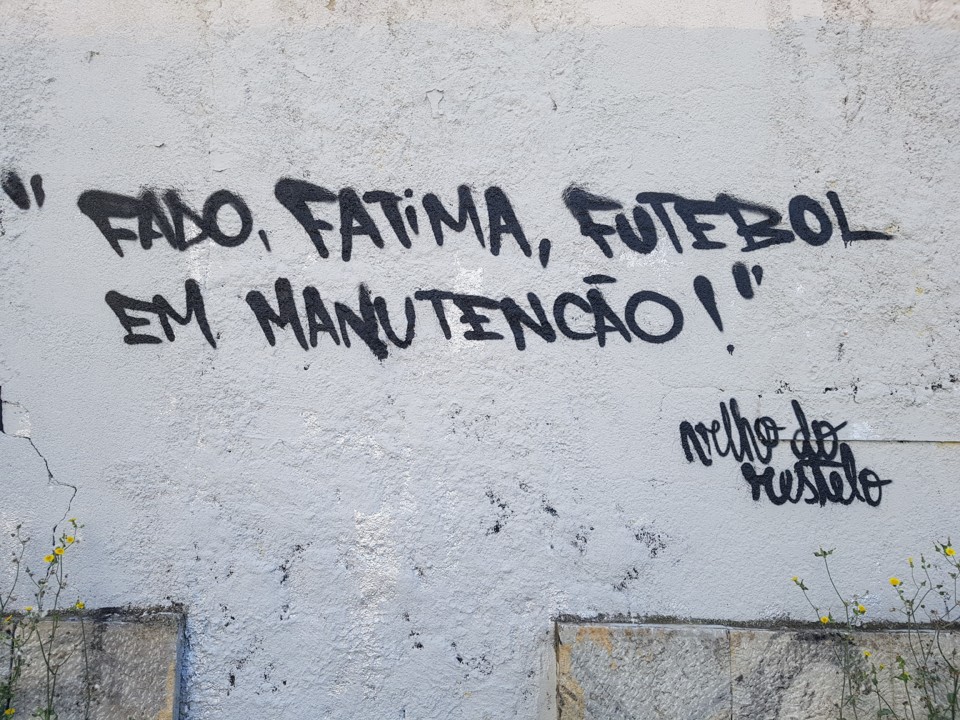 " FADO, FATiMA, FUTEBOL
EM MANUTENCÃO! "
velho do
restelo